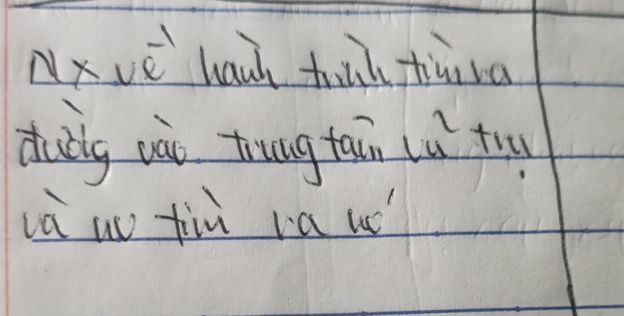 Nx về hành trình tìm ra
đường vào trung tâm vũ trụ
và tìm ra nó